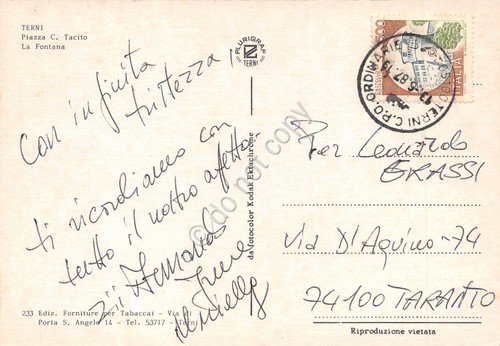 TERNI
Piazza C. Tacito
La Fontana
PLURIGRAF
TERNI
Con infinita
tristezza
ti ricordiamo con
tutto il nostro affetto.
Zii Armanda
233 Ediz. Forniture per Tabaccai - Via di
Porta S. Angelo 14 - Tel. 53717 - Terni
da fotocolor Kodak Ektachrome
do not copy
ITALIA
TERNI C.P.O. ORDINARIE
Per Leonardo
GRASSI
Via D'Aquino-74
74100 TARANTO
Riproduzione vietata